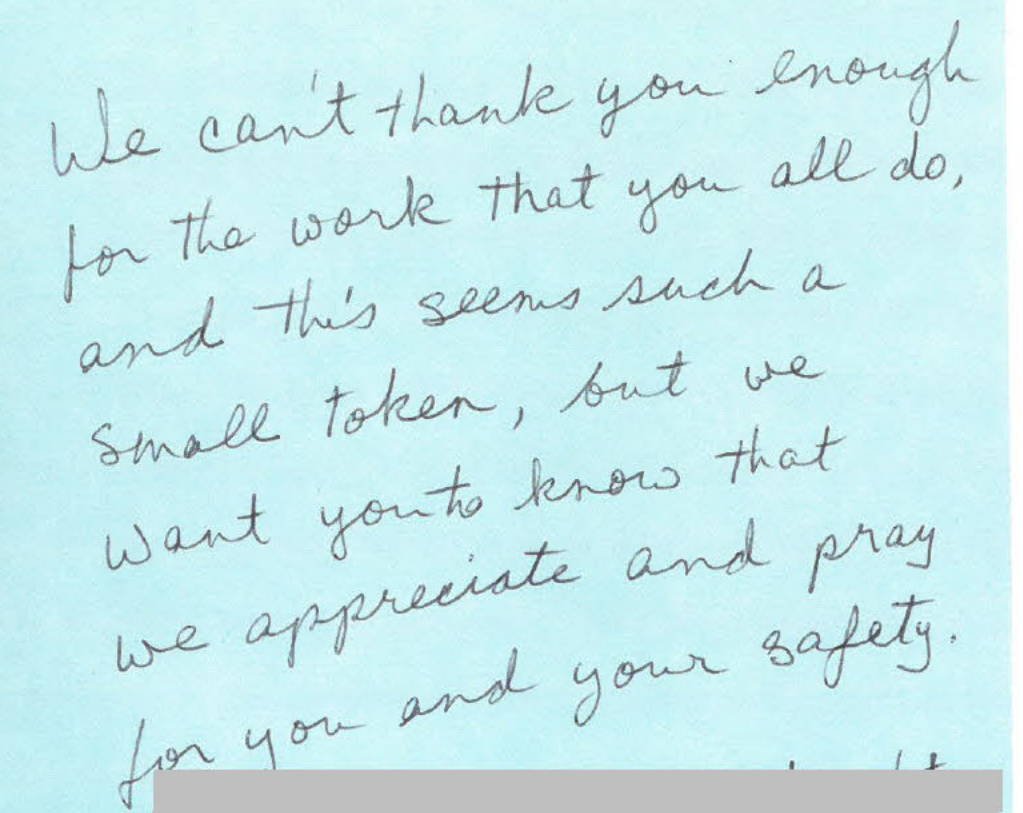 We can't thank you enough
for the work that you all do,
and this seems such a
small token, but we
want you to know that
we appreciate and pray
for you and your safety.